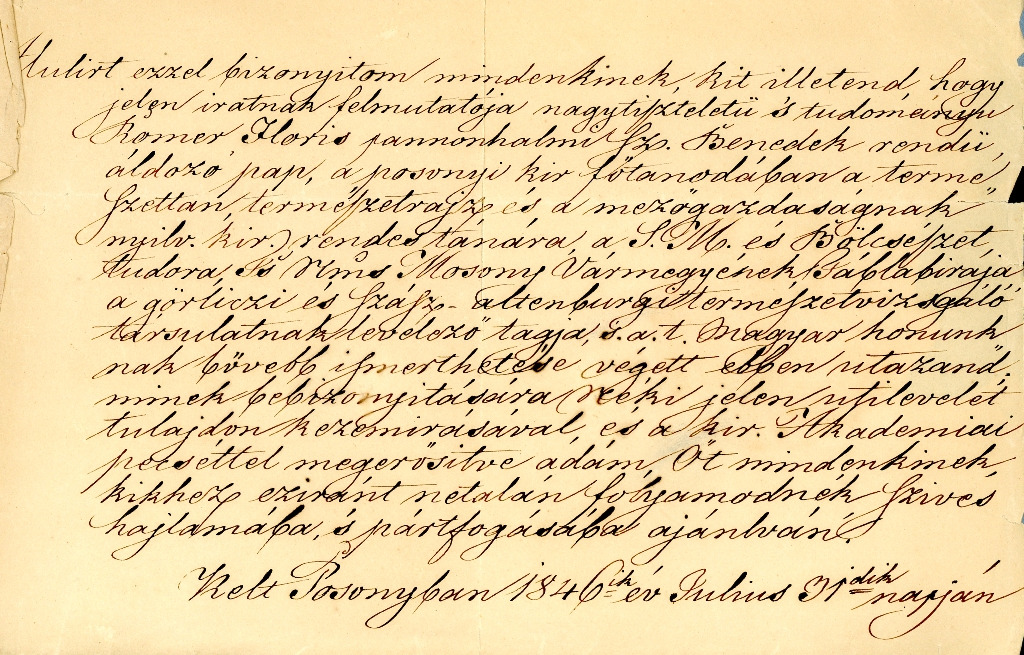 Alulirt ezzel bizonyitom mindenkinek, kit illetend, hogy
jelen iratnak felmutatója nagytiszteletü 's tudományu
Romer Floris pannonhalmi Sz. Benedek rendü,
áldozó pap, a posonyi kir főtanodában a termé
szettan, természetrajz és a mezőgazdaságnak
nyilv. kir. rendes tanára, a S. M. és Bölcsészet,
tudora, Ts Nms Mosony Vármegyének Táblabirája
a görliczi és szász-altenburgi természetvizsgáló
társulatnak levelező tagja, s. a. t. Magyar honunk
nak bővebb ismerhetése végett ebben utazand,
minek bebizonyitására Néki jelen utilevelet
tulajdon kezemirásával, és a kir. Akademiai
pecséttel megerősitve adám, Őt mindenkinek,
kikhez eziránt netalán folyamodnék szives
hajlamába, 's pártfogásába ajánlván.
Kelt Posonyban 1846ik év Julius 31dik napján